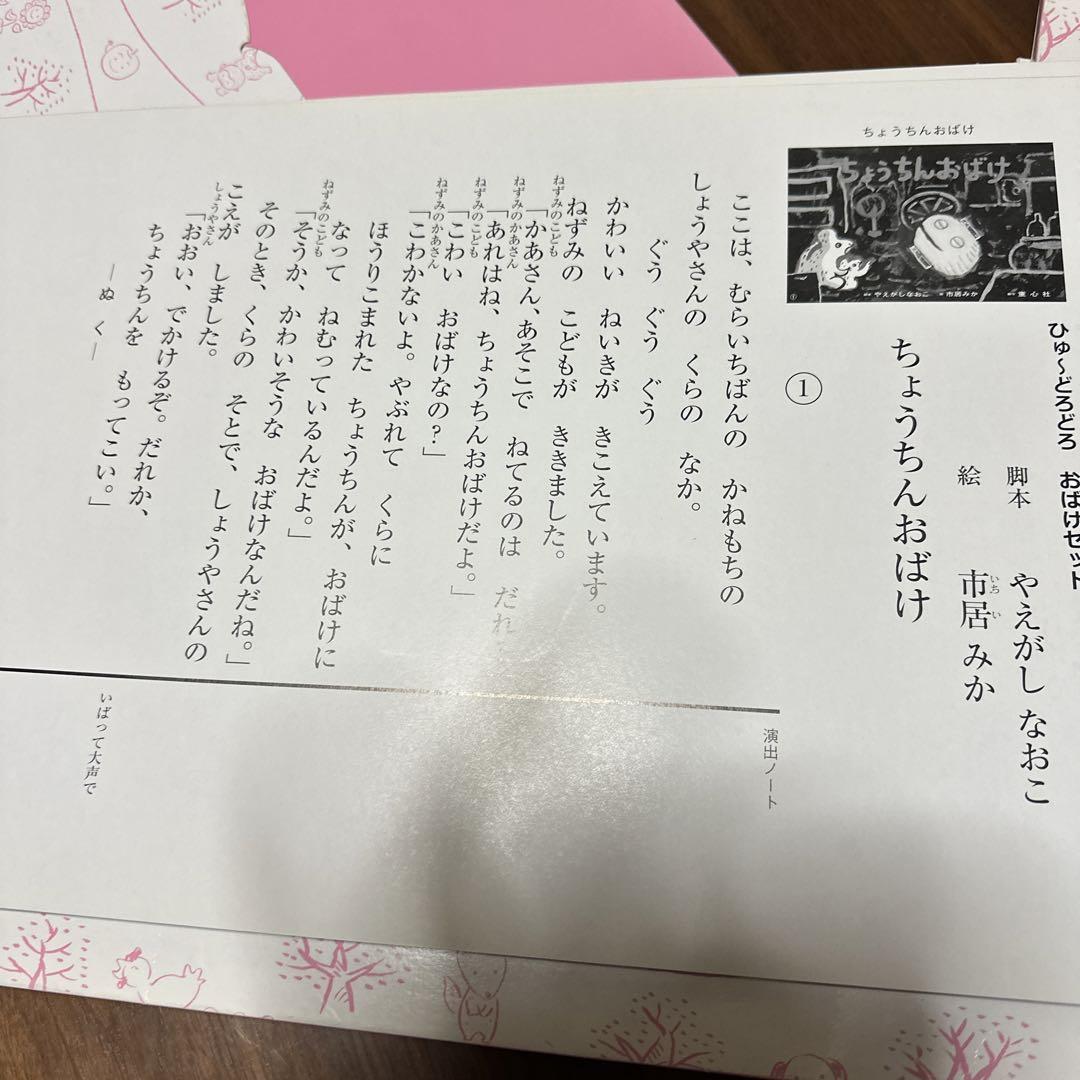 ちょうちんおばけ
ちょうちんおばけ
やえがしなおこ
市居みか
童心社
①
ひゅ～どろどろ　おばけセット
脚本　やえがし なおこ
絵　市居 みか
いちい
ちょうちんおばけ
①
ここは、むらいちばんの　かねもちの
しょうやさんの　くらの　なか。
ぐう　ぐう　ぐう
かわいい　ねいきが　きこえています。
ねずみの　こどもが　ききました。
ねずみのこども
「かあさん、あそこで　ねてるのは　だれ
ねずみのかあさん
「あれはね、ちょうちんおばけだよ。」
ねずみのこども
「こわい　おばけなの？」
ねずみのかあさん
「こわかないよ。やぶれて　くらに
ほうりこまれた　ちょうちんが、おばけに
なって　ねむっているんだよ。」
ねずみのこども
「そうか、かわいそうな　おばけなんだね。」
そのとき、くらの　そとで、しょうやさんの
こえが　しました。
しょうやさん
「おおい、でかけるぞ。だれか、
ちょうちんを　もってこい。」
―ぬ　く―
演出ノート
いばって大声で